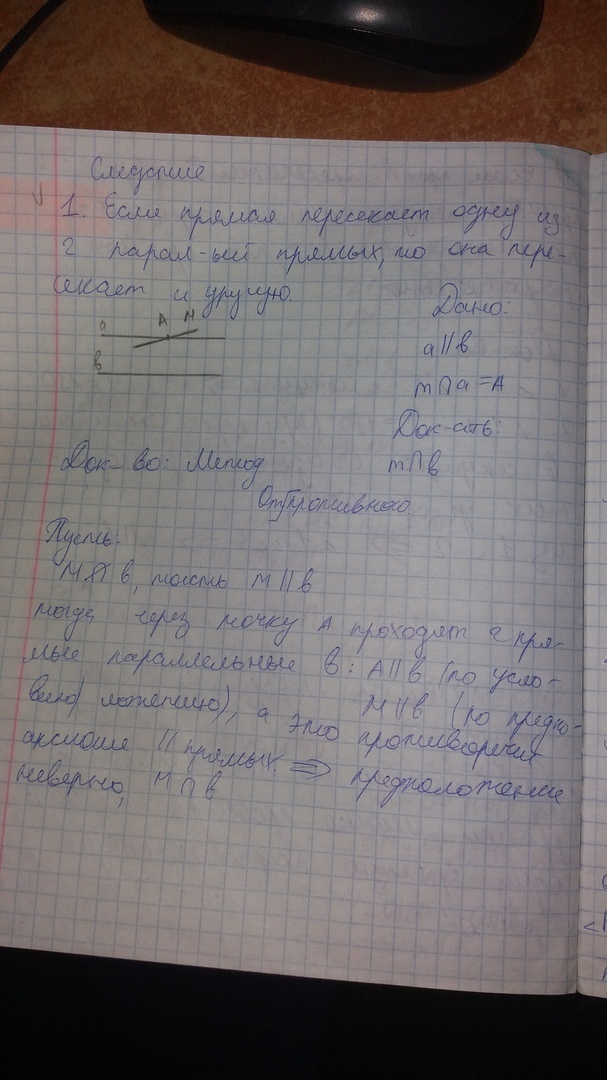 Следствие
1. Если прямая пересекает одну из
2 парал-ый прямых, то она пере-
секает и другую.
a A M
в
Дано:
a||в
m∩a=A
Док-ать:
m∩в
Док-во: Метод
От противного.
Пусть:
M∩̸в, тоесть M||в
тогда через точку A проходят 2 пря-
мые параллельные в: A||в (по усло-
вию) M||в (по предпо-
ложению), а это противоречит
аксиоме || прямых. ⇒ предположение
неверно, M∩в